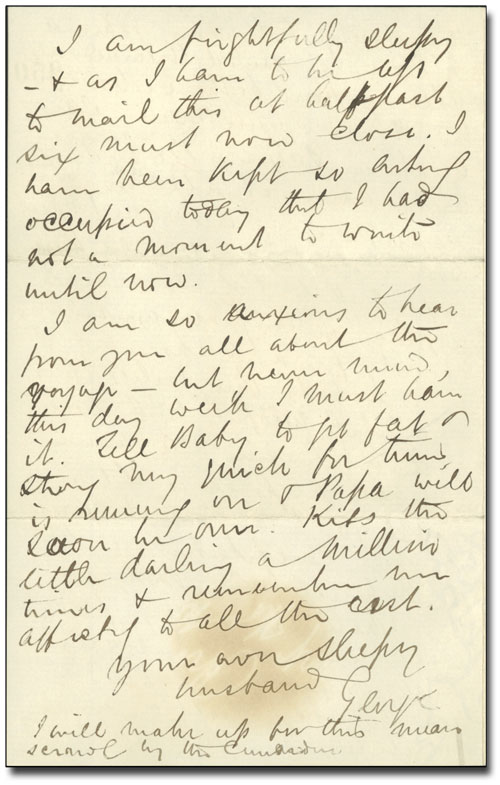 I am frightfully sleepy
- & as I have to be up
to mail this at half past
six must now close. I
have been kept so
occupied today that I had
not a moment to write
until now.
I am so anxious to hear
from you all about the
voyage - but never mind,
this day week I must have
it. Tell Baby to get fat &
strong very quick for time
is running on & Papa will
soon be over. Kiss the
little darling a million
times & remember me
affectly to all the rest.
Your own sleepy
husband
George
I will make up for this mean
scrawl by the Cunarder